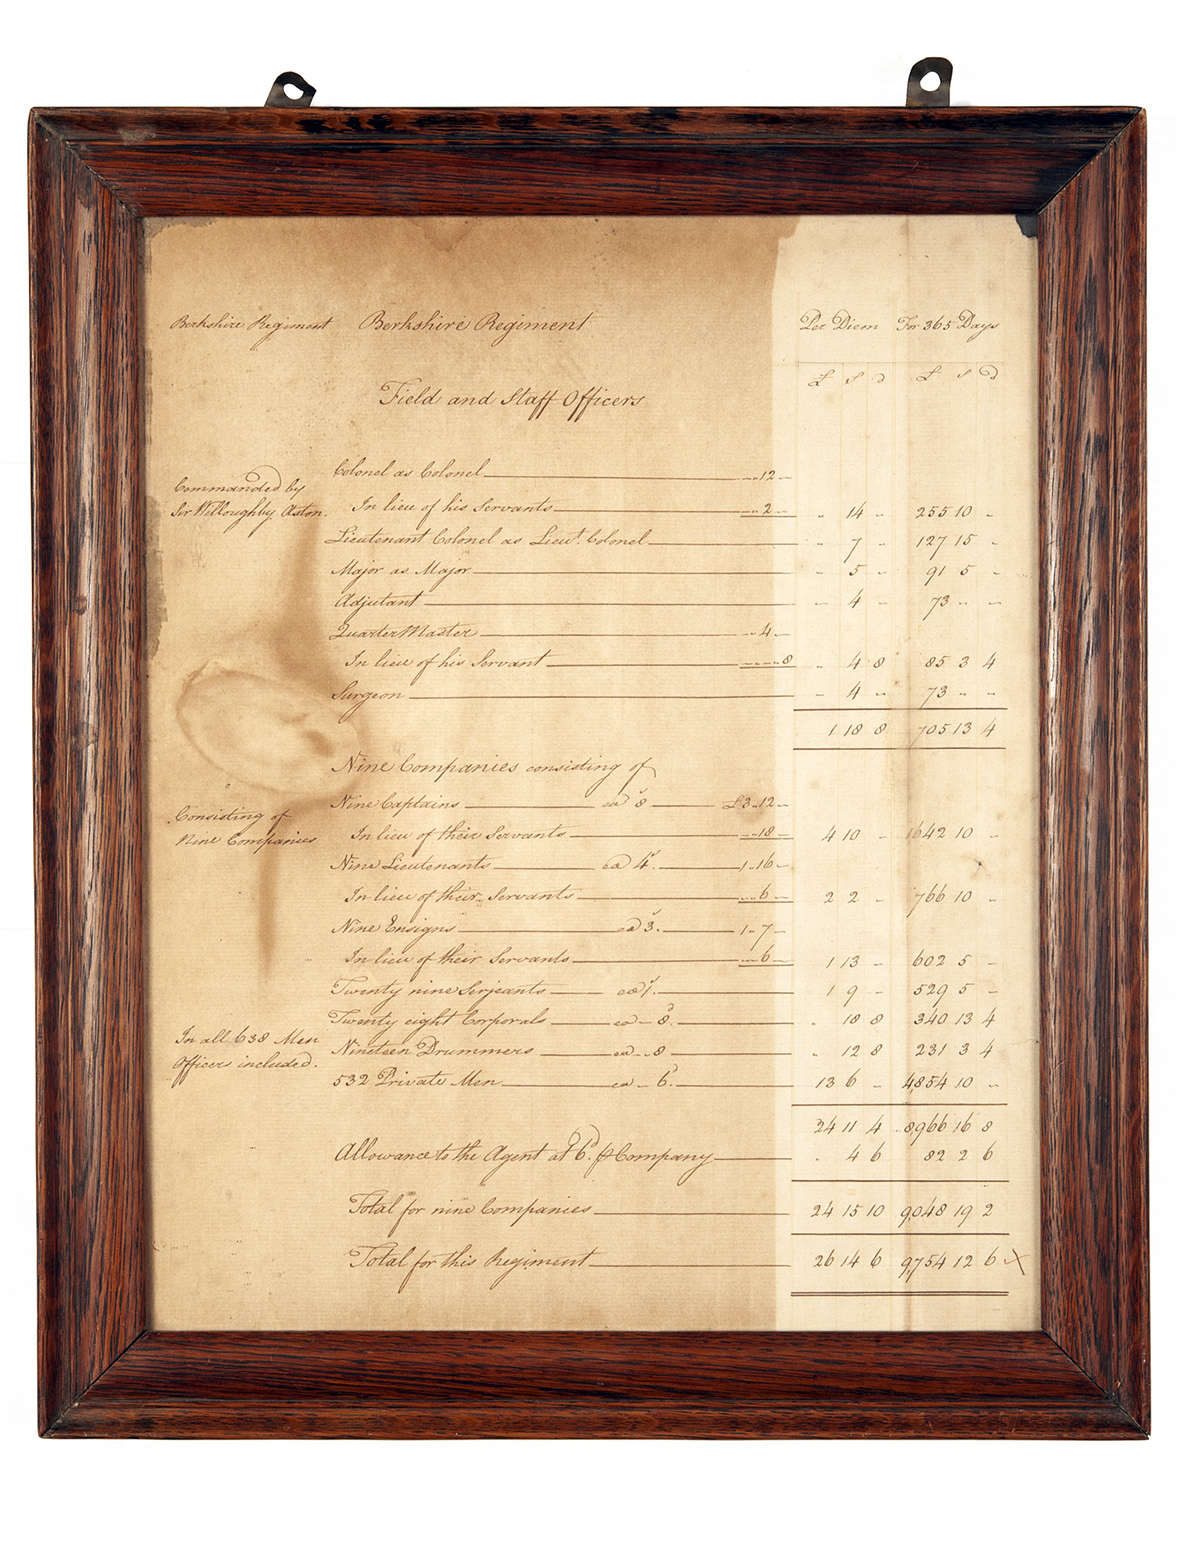 Berkshire Regiment Berkshire Regiment Per Diem For 365 Days
£ s d £ s d
Field and Staff Officers
Colonel as Colonel 12
Commanded by
Sir Willoughby Aston. In lieu of his Servants 2 14 255 10
Lieutenant Colonel as Lieut. Colonel 7 127 15
Major as Major 5 91 5
Adjutant 4 73
Quarter Master 4
In lieu of his Servant 8 4 8 85 3 4
Surgeon 4 73
1 18 8 705 13 4
Nine Companies consisting of
Nine Captains ea 8s £3 12
Consisting of
Nine Companies In lieu of their Servants 18 4 10 1642 10
Nine Lieutenants ea 4s. 1 16
In lieu of their Servants 6 2 2 766 10
Nine Ensigns ea 3s. 1 7
In lieu of their Servants 6 1 13 602 5
Twenty nine Serjeants ea 1s. 1 9 529 5
Twenty eight Corporals ea 8d. 18 8 340 13 4
In all 638 Men
Officers included. Nineteen Drummers ea 8 12 8 231 3 4
532 Private Men ea 6d. 13 6 4,854 10
24 11 4 8,966 16 8
Allowance to the Agent at 6d. ⅌ Company 4 6 82 2 6
Total for nine Companies 24 15 10 9,048 19 2
Total for this Regiment 26 14 6 9,754 12 6